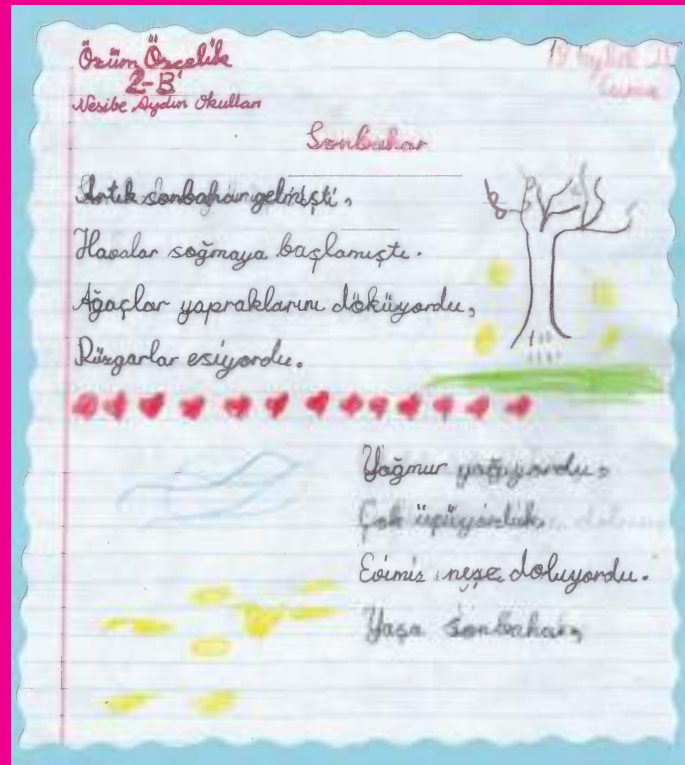 Özüm Özçelik
2-B
Nesibe Aydın Okulları
Eylül
Cuma
Sonbahar
Artık sonbahar gelmişti,
Havalar soğmaya başlamıştı.
Ağaçlar yapraklarını döküyordu,
Rüzgarlar esiyordu.
Yağmur yağıyordu,
Çok üşüyorduk.
Evimiz neşe doluyordu.
Yaşa Sonbahar,